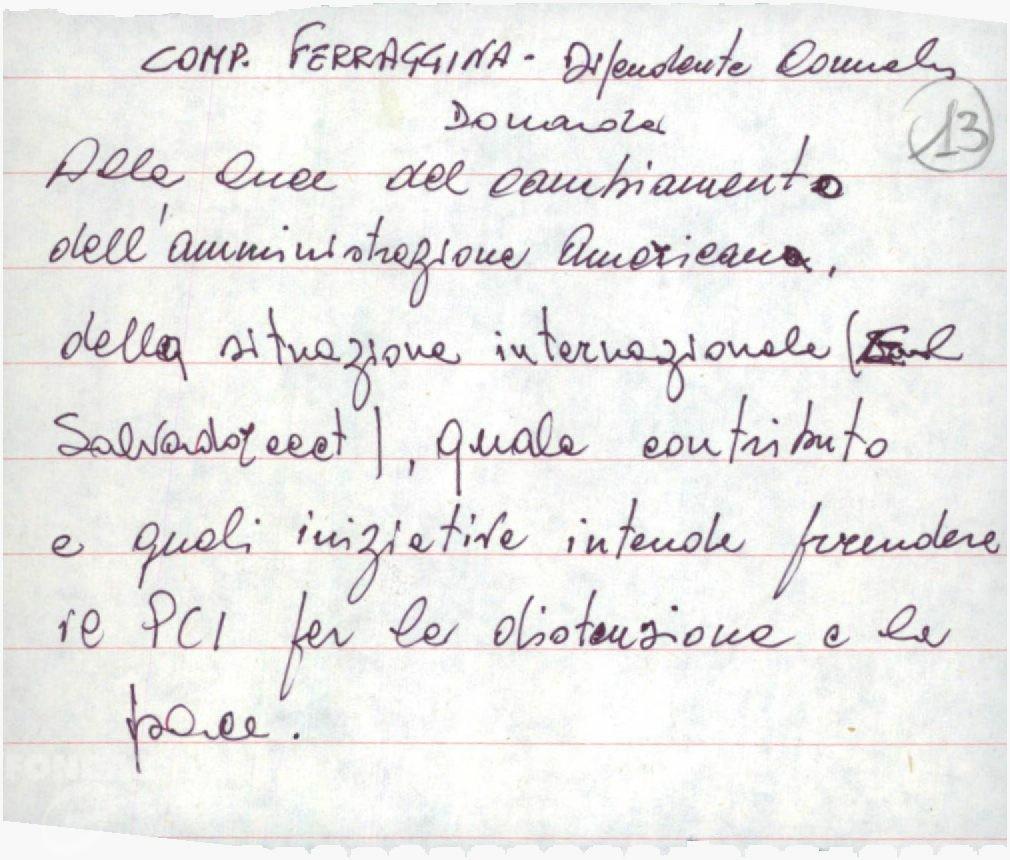 COMP. FERRAGGINA - Dipendente Comunale
Domanda
13
Alla luce del cambiamento
dell'amministrazione americana,
della situazione internazionale (
Salvador ecct), quale contributo
e quali iniziative intende prendere
il PCI per la distensione e la
pace.